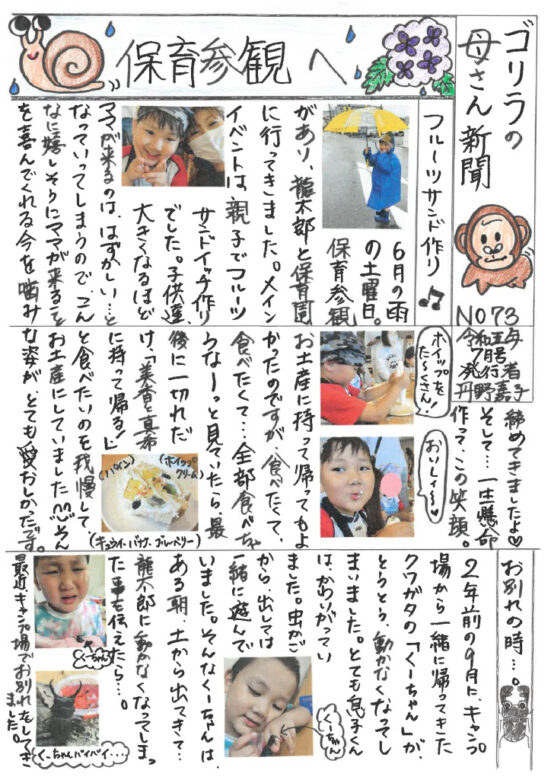 ゴリラの
母さん新聞
NO73
令和五年
7月号
発行者
丹野嘉子
保育参観へ
フルーツサンド作り♫
6月の雨
の土曜日。
保育参観
があり、龍太郎と保育園
に行ってきました。メイン
イベントは、親子でフルーツ
サンドイッチ作り
でした。子供達、
大きくなるほど
ママが来るのは、はずかしい…と
なっていってしまうので、こん
なに嬉しそうにママが来ること
を喜んでくれる今を噛み
締めてきましたよ♡
そして…一生懸命
作って、この笑顔。
ホイップを
たーくさん!
おいしーい~♡
お土産に持って帰ってもよ
かったのですが、食べたくて、
食べたくて…全部食べちゃ
うなーっと見ていたら、最
後に一切れだ
け、「美香と真希
に持って帰る!」
と食べたいのを我慢して、
お土産にしていました
そん
な姿が、とても愛おしかったです。
(パイン)
(ホイップ
クリーム)
(キュウイ・バナナ・ブルーベリー)
お別れの時…。
2年前の9月に、キャンプ
場から一緒に帰ってきた
クワガタの「くーちゃん」が、
とうとう、動かなくなってし
まいました。とても息子くん
は、かわいがってい
ました。虫かご
から、出しては
一緒に遊んで
いました。そんなくーちゃんは、
ある朝、土から出てきて…
龍太郎に動かなくなってしまっ
た事を伝えたら…。
最近キャンプ場でお別れをしてき
ました。
くーちゃん
くーちゃん
くーちゃんバイバイ…